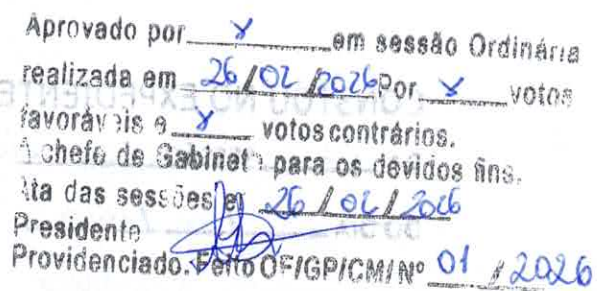 Aprovado por x em sessão Ordinária
realizada em 26/02/2026 Por x votos
favoráveis e x votos contrários.
À chefe de Gabinete para os devidos fins.
das sessões 26/02/2026
Presidente
Providenciado. Feito OF/GP/CM/Nº 01/2026